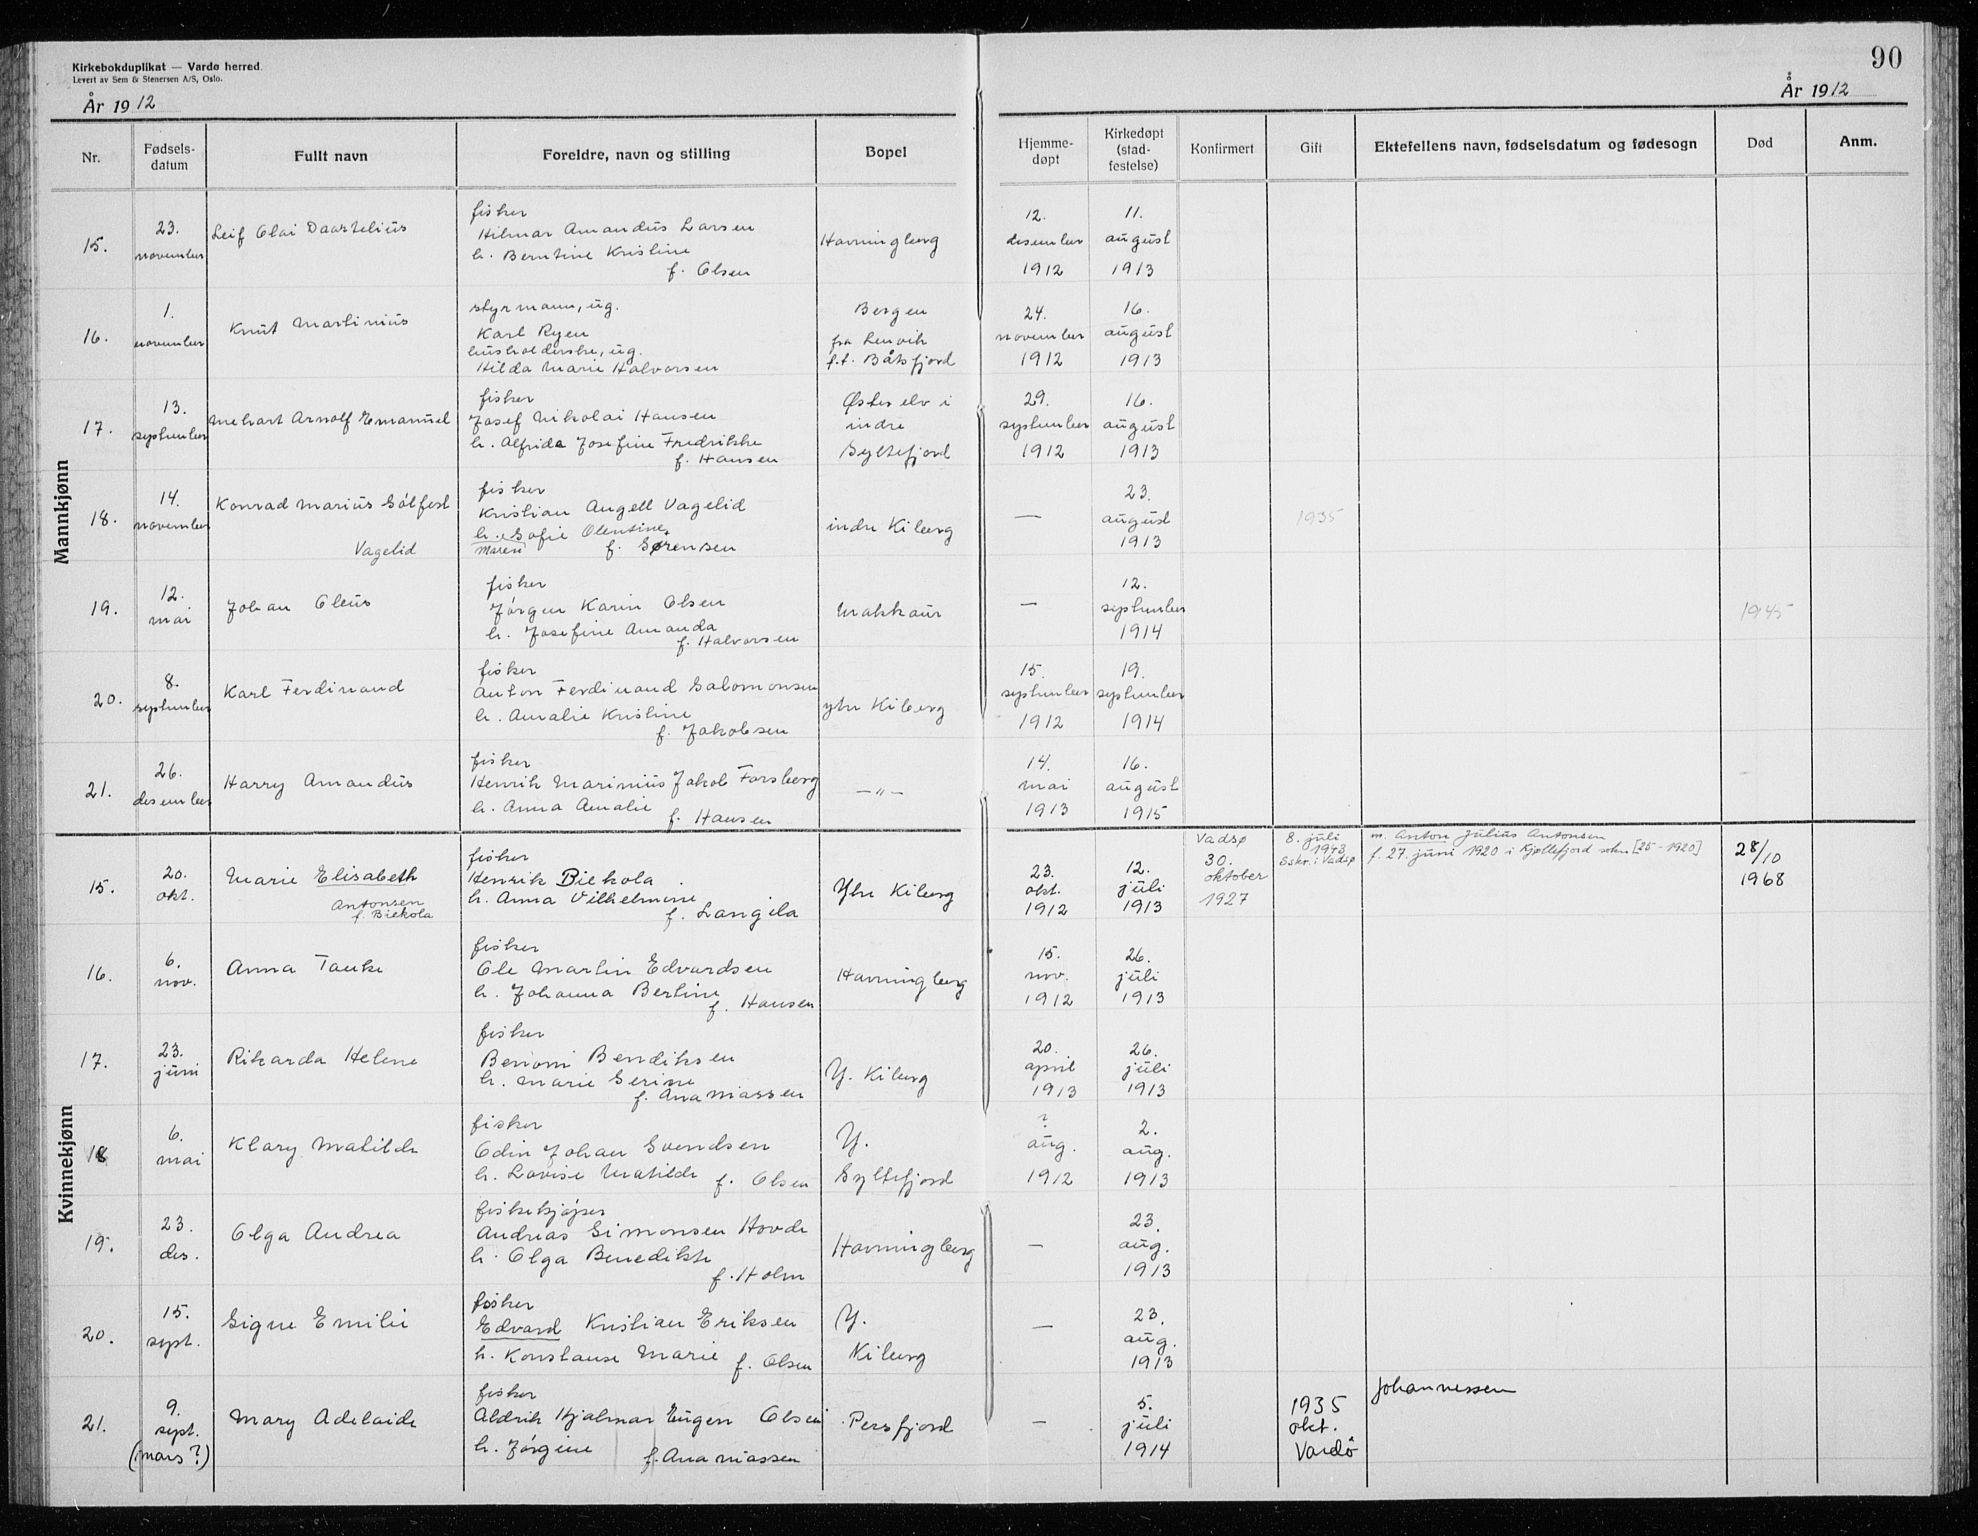 90
Kirkebokduplikat — Vardø herred.
Levert av Sem & Stenersen A/S, Oslo.
År 1912
År 1912
Nr. Fødsels-datum Fullt navn Foreldre, navn og stilling Bopel Hjemme-døpt Kirkedøpt (stad-festelse) Konfirmert Gift Ektefellens navn, fødselsdatum og fødesogn Død Anm.
Mannkjønn
15. 23. november Leif Olai Daartelius
fisker
Hilmar Amandus Larsen
h. Berntine Kristine
f. Olsen
Havningberg
12. desember 1912
11. august 1913
16. 1. november Knut Martinius
styrmann, ug.
Karl Ryen
husholderske, ug.
Hilda Marie Halvorsen
Bergen
fra Lenvik
f.t. Båtsfjord
24. november 1912
16. august 1913
17. 13. september Mehart Arnolf Emanuel
fisker
Josef Nikolai Hansen
h. Alfride Josefine Fredrikke
f. Hansen
Østerelv i
indre
Syltefjord
29. september 1912
16. august 1913
18. 14. november Konrad Marius Sólfest
Vagelid
fisker
Kristian Angell Vagelid
h. Sofie Olentine
Maren f. Sørensen
indre Kiberg
—
23. august 1913
1935
19. 12. mai Johan Oleus
fisker
Jørgen Karin Olsen
h. Josefine Amanda
f. Halvorsen
Makkaur
—
12. september 1914
1945
20. 8. september Karl Ferdinand
fisker
Anton Ferdinand Salomonsen
h. Amalie Kristine
f. Jakobsen
ytre Kiberg
15. september 1912
19. september 1914
21. 26. desember Harry Amandus
fisker
Henrik Marinius Jakob Forsberg
h. Anna Amalie
f. Hansen
—"—
14. mai 1913
16. august 1915
Kvinnekjønn
15. 20. okt. Marie Elisabeth
Antonsen
f. Biekola
fisker
Henrik Biekola
h. Anna Vilhelmine
f. Langila
Ytre Kiberg
23. okt. 1912
12. juli 1913
Vadsø
30. oktober 1927
8. juli 1943
sskr. i Vadsø
m. Anton Julius Antonsen
f. 27. juni 1920 i Kjøllefjord sokn [25 - 1920]
28/10 1968
16. 6. nov. Anna Tanke
fisker
Ole Martin Edvardsen
h. Johanna Bertine
f. Hansen
Havningberg
15. nov. 1912
26. juli 1913
17. 23. juni Rikarda Helene
fisker
Benoni Bendiksen
h. Marie Serine
f. Ananiassen
Y. Kiberg
20. april 1913
26. juli 1913
18 6. mai Klary Matilde
fisker
Odin Johan Svendsen
h. Lovise Matilde f. Olsen
Y.
Syltefjord
? aug. 1912
2. aug. 1913
19. 23. des. Olga Andrea
fiskekjøper
Andreas Simonsen Hovde
h. Olga Benedikte
f. Holm
Havningberg
—
23. aug. 1913
20. 15. sept. Signe Emilie
fisker
Edvard Kristian Eriksen
h. Konstanse Marie f. Olsen
Y.
Kiberg
—
23. aug. 1913
21. 9. sept. (mars ?) Mary Adelaide
fisker
Aldrik Hjalmar Eugen Olsen
h. Jørgine f. Ananiassen
Persfjord
—
5. juli 1914
1935 okt. Vardö
Johannessen